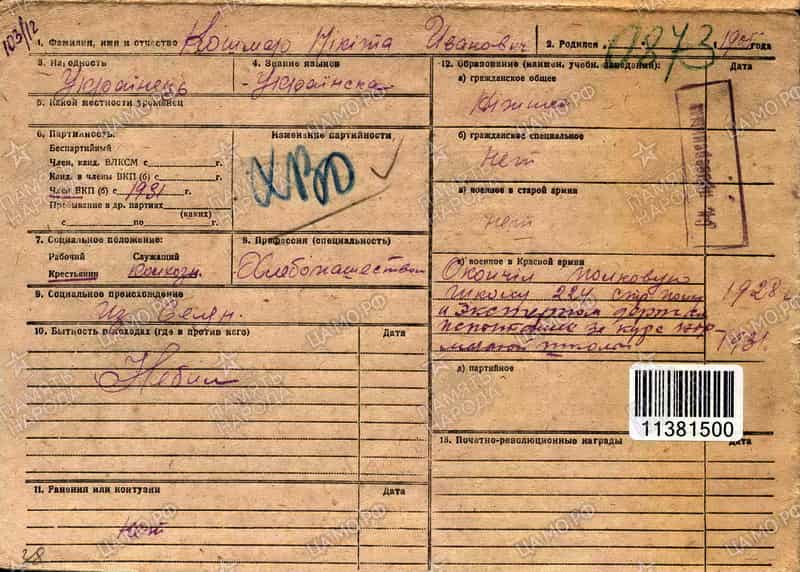 103/12
1. Фамилия, имя и отчество Кошмар Нікіта Иванович
2. Родился 0873 19 года
3. Нац. одность Украінець
4. Знание языков - Украінска
5. Какой местности уроженец
6. Партийность:
Беспартийный
Член, канд. ВЛКСМ с г.
Канд. в члены ВКП (б) с г.
Член ВКП (б) с 1931 г.
Пребывание в др. партиях
(каких)
с по г.
Изменение партийности
ХВО
7. Социальное положение:
Рабочий Служащий
Крестьянин Колхозн.
8. Профессия (специальность)
Хлебопашеством
9. Социальное происхождение
Из Селян.
10. Бытность в походах (где и против кого) Дата
Небил
11. Ранения или контузии Дата
Нет
28
12. Образование (наимен. учебн. заведений): Дата
а) гражданское общее
Нізшие
б) гражданское специальное
Нет
в) военное в старой армии
Нет
г) военное в Красной армии
Окончіл полковую
школу 224 стр полк 1928 г
и Экстерном
за курс нор
мальной школи 1931.
д) партийное
11381500
13. Почетно-революционные награды Дата
ПАМЯТЬ НАРОДА
ЦАМО.РФ